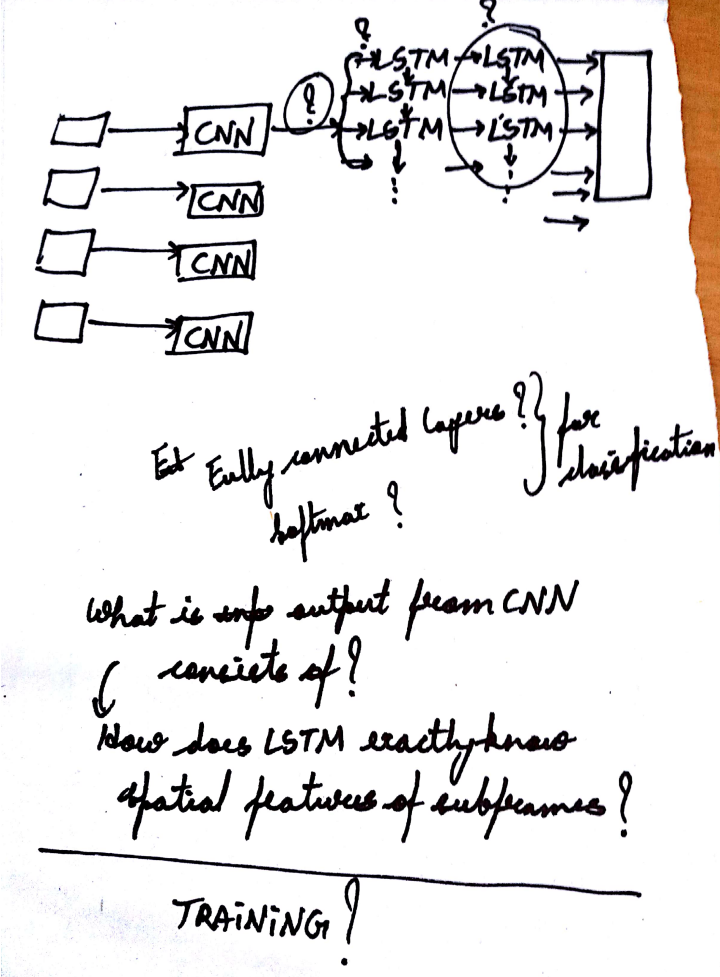 ?
? LSTM LSTM
LSTM LSTM
CNN ? LSTM LSTM
CNN
CNN
CNN
Fully connected layers ? } for
classification
softmax ?
What is output from CNN
consists of ?
How does LSTM exactly know
spatial features of subframes ?
TRAiNiNG ?